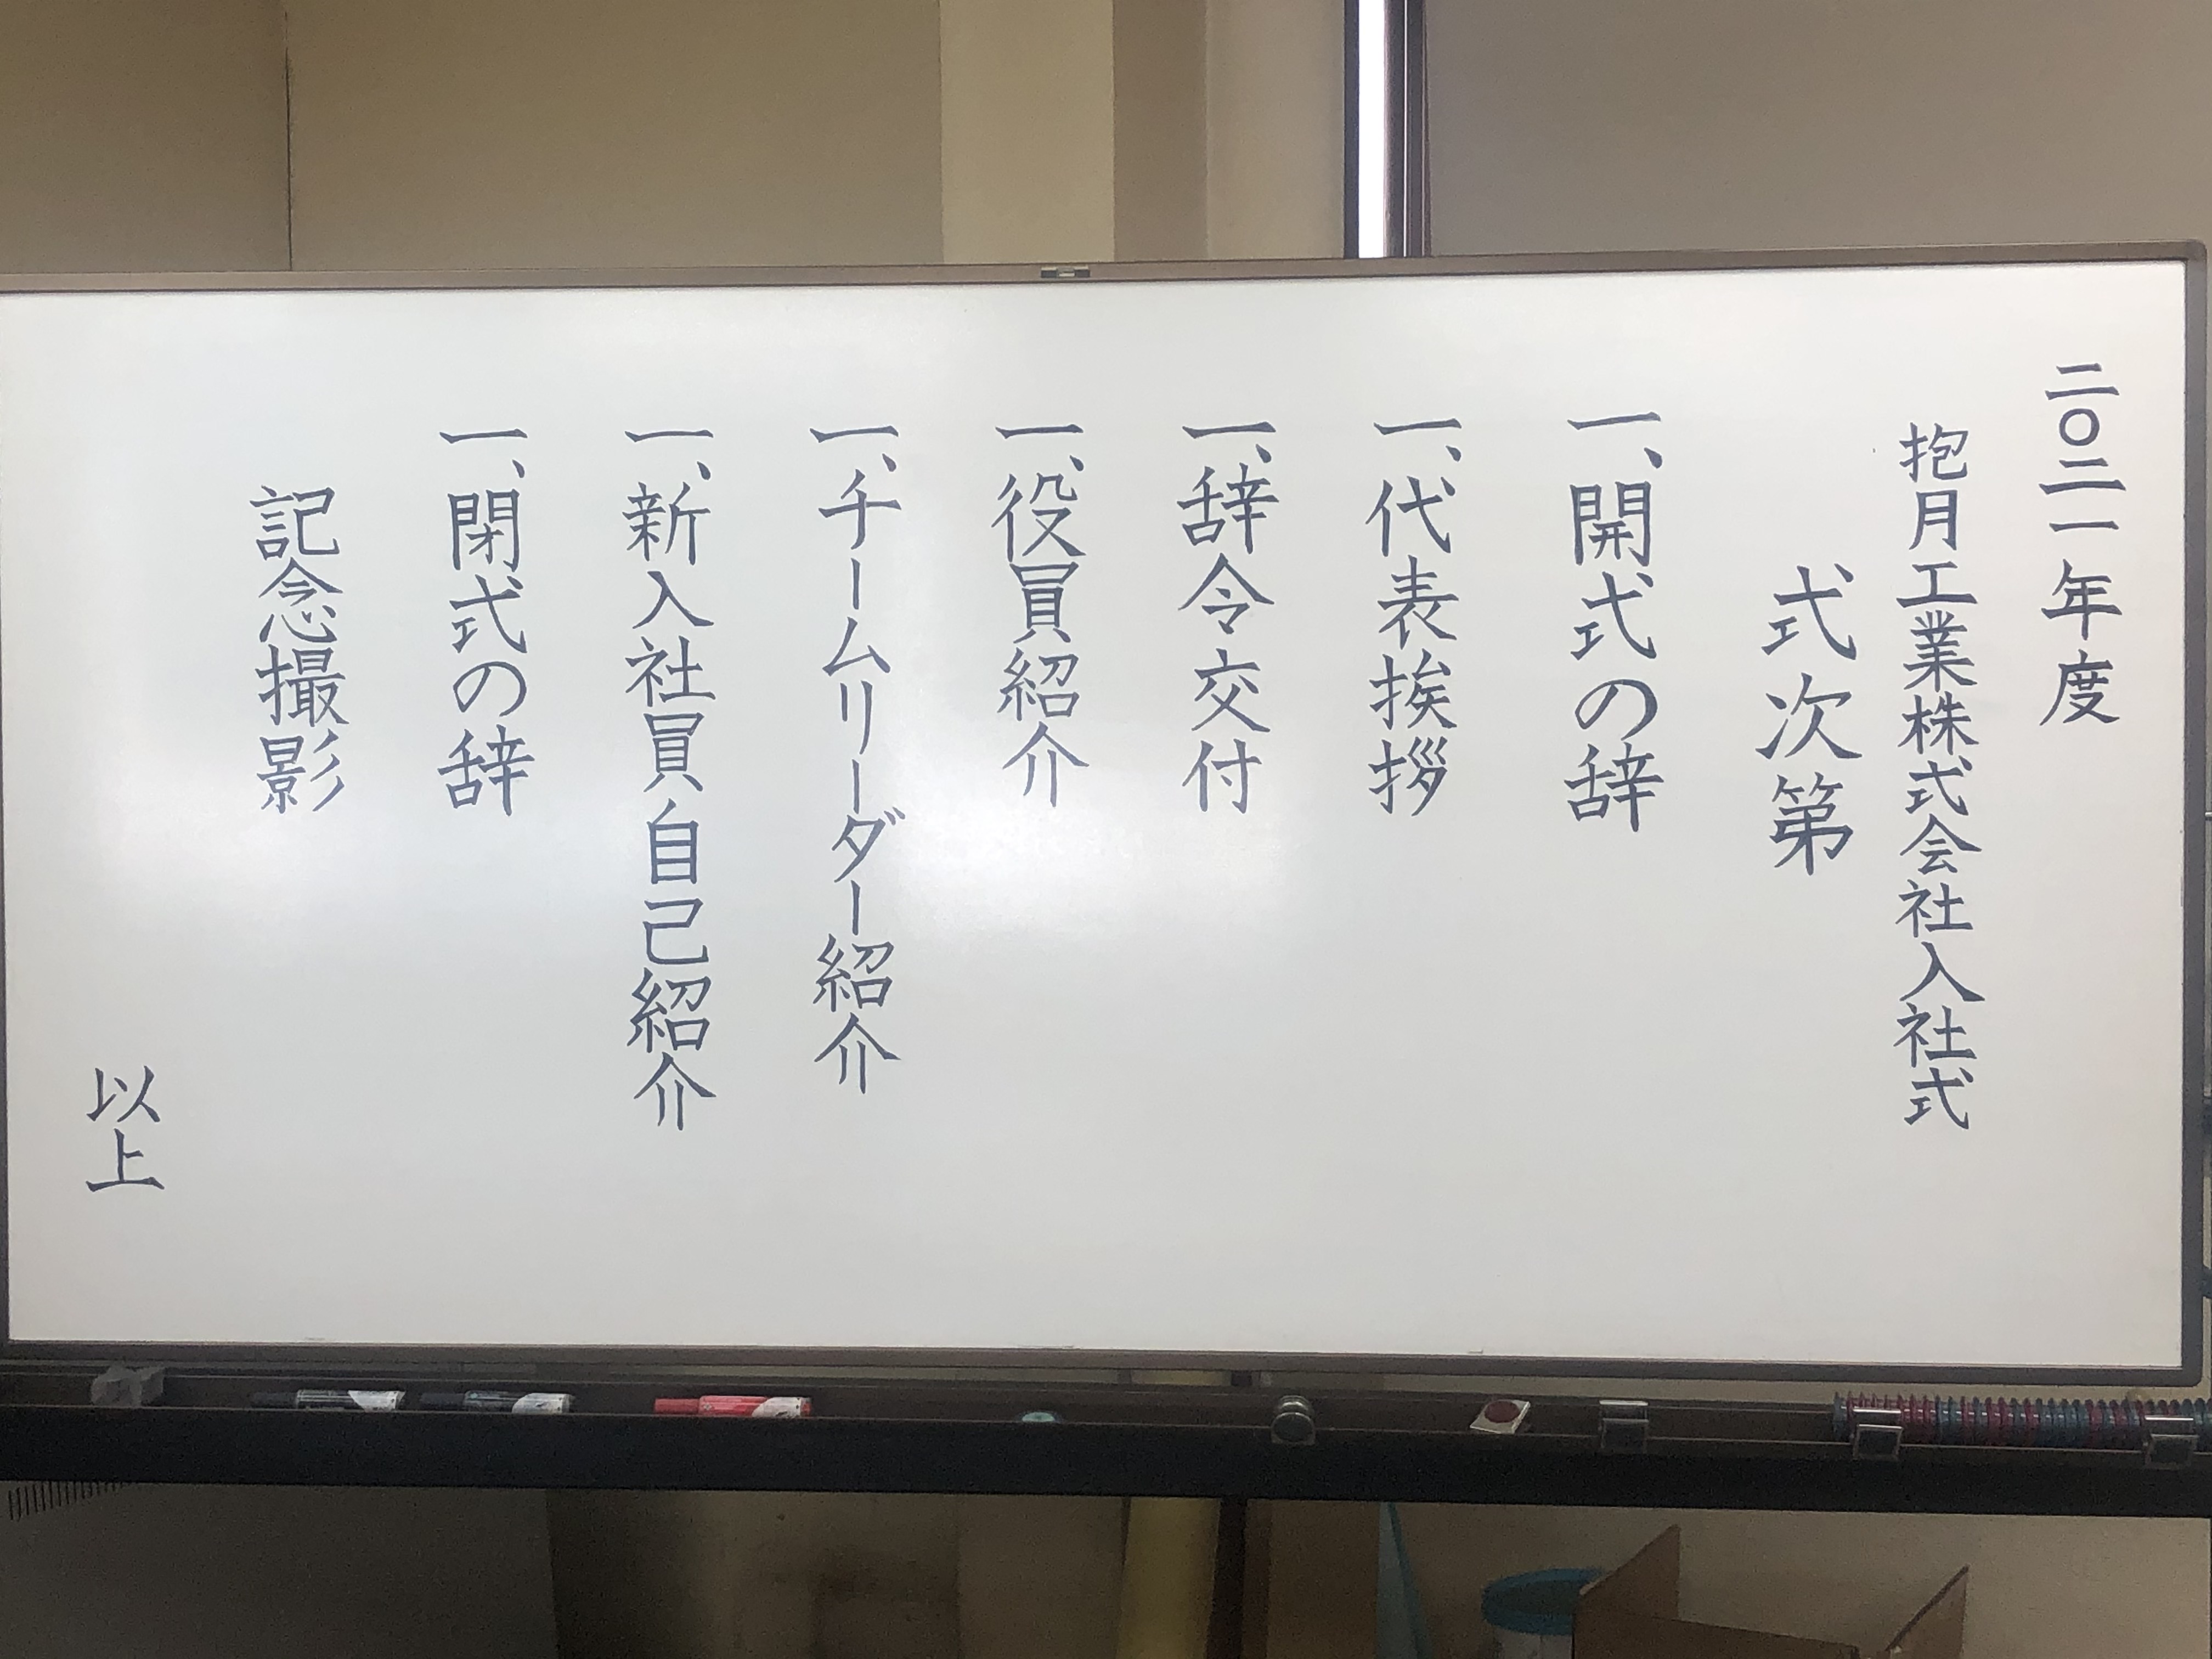 二〇二一年度
抱月工業株式会社入社式
式次第
一、開式の辞
一、代表挨拶
一、辞令交付
一、役員紹介
一、チームリーダー紹介
一、新入社員自己紹介
一、閉式の辞
記念撮影
以上